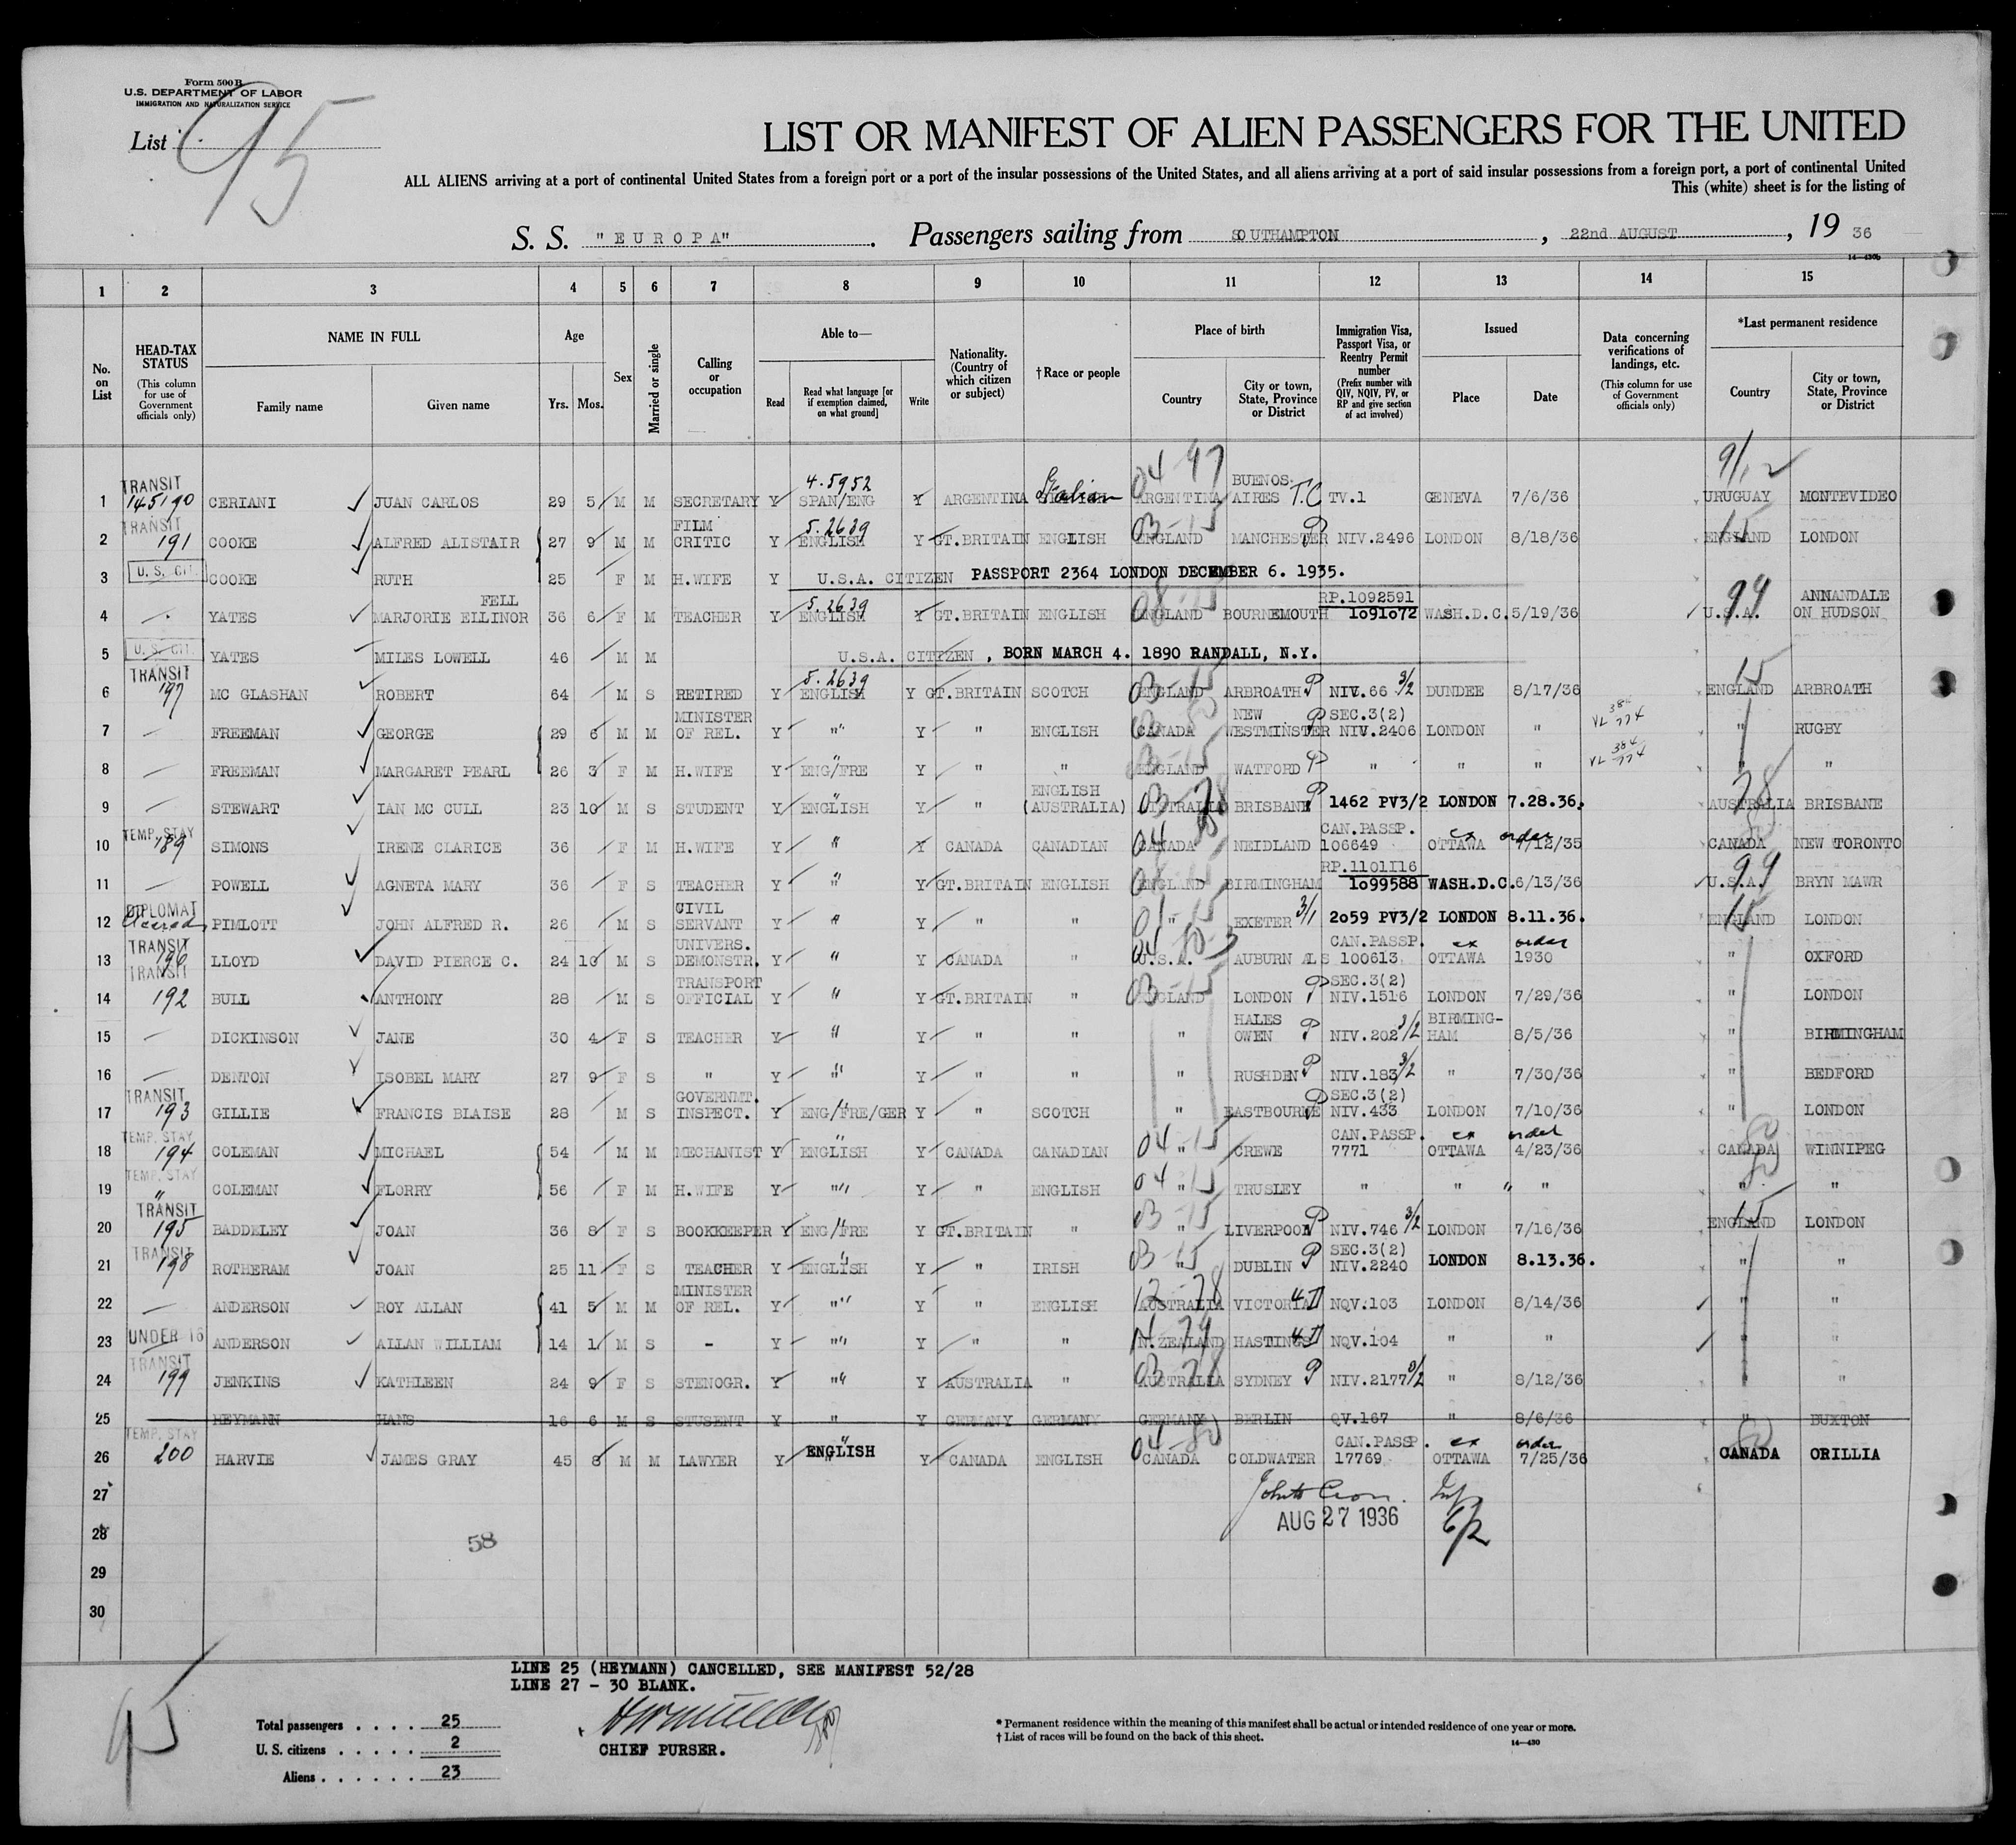 Form 500 B
U.S. DEPARTMENT OF LABOR
IMMIGRATION AND NATURALIZATION SERVICE
List 95
LIST OR MANIFEST OF ALIEN PASSENGERS FOR THE UNITED
ALL ALIENS arriving at a port of continental United States from a foreign port or a port of the insular possessions of the United States, and all aliens arriving at a port of said insular possessions from a foreign port, a port of continental United
This (white) sheet is for the listing of
S. S. "EUROPA" . Passengers sailing from SOUTHAMPTON , 22nd AUGUST , 19 36
14—430b
1 2 3 4 5 6 7 8 9 10 11 12 13 14 15
No. on List
HEAD-TAX STATUS (This column for use of Government officials only)
NAME IN FULL
Family name
Given name
Age
Yrs. Mos.
Sex
Married or single
Calling or occupation
Able to—
Read
Read what language [or if exemption claimed, on what ground]
Write
Nationality. (Country of which citizen or subject)
†Race or people
Place of birth
Country
City or town, State, Province or District
Immigration Visa, Passport Visa, or Reentry Permit number (Prefix number with QIV, NQIV, PV, or RP and give section of act involved)
Issued
Place
Date
Data concerning verifications of landings, etc. (This column for use of Government officials only)
*Last permanent residence
Country
City or town, State, Province or District
1 TRANSIT 145190 CERIANI JUAN CARLOS 29 5 M M SECRETARY Y 4.5952 SPAN/ENG Y ARGENTINA Italian 04-97 ARGENTINA BUENOS AIRES T.C TV.1 GENEVA 7/6/36 91/2 URUGUAY MONTEVIDEO
2 TRANSIT 191 COOKE ALFRED ALISTAIR 27 9 M M FILM CRITIC Y 5.2639 ENGLISH Y GT.BRITAIN ENGLISH 03-15 ENGLAND MANCHESTER P NIV.2496 LONDON 8/18/36 15 ENGLAND LONDON
3 U. S. CIT. COOKE RUTH 25 F M H.WIFE Y U.S.A. CITIZEN PASSPORT 2364 LONDON DECEMBER 6. 1935.
4 YATES MARJORIE FELL ELLINOR 36 6 F M TEACHER Y 5.2639 ENGLISH Y GT.BRITAIN ENGLISH 08-15 ENGLAND BOURNEMOUTH RP.1092591 1091072 WASH.D.C. 5/19/36 99 U.S.A. ANNANDALE ON HUDSON
5 U. S. CIT. YATES MILES LOWELL 46 M M U.S.A. CITIZEN , BORN MARCH 4. 1890 RANDALL, N.Y.
6 TRANSIT 197 MC GLASHAN ROBERT 64 M S RETIRED Y 5.2639 ENGLISH Y GT.BRITAIN SCOTCH 03-15 ENGLAND ARBROATH P NIV.66 3/2 DUNDEE 8/17/36 15 ENGLAND ARBROATH
7 — FREEMAN GEORGE 29 6 M M MINISTER OF REL. Y " Y " ENGLISH CANADA NEW WESTMINSTER P SEC.3(2) NIV.2406 LONDON " VL 384 774 " RUGBY
8 — FREEMAN MARGARET PEARL 26 3 F M H.WIFE Y ENG/FRE Y " " 03-15 ENGLAND WATFORD P " " " VL 384 774 " "
9 — STEWART IAN MC CULL 23 10 M S STUDENT Y ENGLISH Y " ENGLISH (AUSTRALIA) 03-78 AUSTRALIA BRISBANE P 1462 PV3/2 LONDON 7.28.36. 78 AUSTRALIA BRISBANE
10 TEMP. STAY 189 SIMONS IRENE CLARICE 36 F M H.WIFE Y " Y CANADA CANADIAN 04 80 CANADA NEIDLAND CAN.PASSP. 106649 OTTAWA ex order 7/12/35 80 CANADA NEW TORONTO
11 — POWELL AGNETA MARY 36 F S TEACHER Y " Y GT.BRITAIN ENGLISH ENGLAND BIRMINGHAM RP.1101116 1099588 WASH.D.C. 6/13/36 99 U.S.A. BRYN MAWR
12 DIPLOMAT PIMLOTT JOHN ALFRED R. 26 M S CIVIL SERVANT Y " Y " " 01-15 " EXETER 3/1 2059 PV3/2 LONDON 8.11.36. 15 ENGLAND LONDON
13 TRANSIT 196 LLOYD DAVID PIERCE C. 24 10 M S UNIVERS. DEMONSTR. Y " Y CANADA " 04 80-3 U.S.A. AUBURN ALS CAN.PASSP. 100613 ex order OTTAWA 1930 " OXFORD
14 TRANSIT 192 BULL ANTHONY 28 M S TRANSPORT OFFICIAL Y " Y GT.BRITAIN " 03-15 ENGLAND LONDON P SEC.3(2) NIV.1516 LONDON 7/29/36 " LONDON
15 — DICKINSON JANE 30 4 F S TEACHER Y " Y " " " HALES OWEN P NIV.202 3/2 BIRMING- HAM 8/5/36 " BIRMINGHAM
16 — DENTON ISOBEL MARY 27 9 F S " Y " Y " " " RUSHDEN P NIV.183 3/2 " 7/30/36 " BEDFORD
17 TRANSIT 193 GILLIE FRANCIS BLAISE 28 M S GOVERNMT. INSPECT. Y ENG/FRE/GER Y " SCOTCH " EASTBOURNE P SEC.3(2) NIV.433 LONDON 7/10/36 " LONDON
18 TEMP. STAY 194 COLEMAN MICHAEL 54 M M MECHANIST Y ENGLISH Y CANADA CANADIAN 04-15 " CREWE CAN.PASSP. 7771 ex order OTTAWA 4/23/36 80 CANADA WINNIPEG
19 TEMP. STAY " COLEMAN FLORRY 56 F M H.WIFE Y " Y " ENGLISH 04-15 " TRUSLEY " " " " 80 " "
20 TRANSIT 195 BADDELEY JOAN 36 8 F S BOOKKEEPER Y ENG/FRE Y GT.BRITAIN " 03-15 " LIVERPOOL P NIV.746 3/2 LONDON 7/16/36 15 ENGLAND LONDON
21 TRANSIT 198 ROTHERAM JOAN 25 11 F S TEACHER Y ENGLISH Y " IRISH 03-15 " DUBLIN P SEC.3(2) NIV.2240 LONDON 8.13.36. " "
22 — ANDERSON ROY ALLAN 41 5 M M MINISTER OF REL. Y " Y " ENGLISH 12-78 AUSTRALIA VICTORIA 4 II NQV.103 LONDON 8/14/36 " "
23 UNDER 16 ANDERSON ALLAN WILLIAM 14 1 M S - Y " Y " " 14-79 N.ZEALAND HASTINGS 4 II NQV.104 " " " "
24 TRANSIT 199 JENKINS KATHLEEN 24 9 F S STENOGR. Y " Y AUSTRALIA " 03-78 AUSTRALIA SYDNEY P NIV.2177 3/2 " 8/12/36 "
25 HEYMANN HANS 16 6 M S STUSENT Y " Y GERMANY GERMANY GERMANY BERLIN QV.167 " 8/6/36 " BUXTON
26 TEMP. STAY 200 HARVIE JAMES GRAY 45 8 M M LAWYER Y ENGLISH Y CANADA ENGLISH 04-80 CANADA COLDWATER CAN.PASSP. 17769 ex order OTTAWA 7/25/36 80 CANADA ORILLIA
27
28 AUG 27 1936 6/2
58
29
30
LINE 25 (HEYMANN) CANCELLED, SEE MANIFEST 52/28
LINE 27 - 30 BLANK.
95
Total passengers . . . . 25
U. S. citizens . . . . . 2
Aliens . . . . . . 23
CHIEF PURSER.
* Permanent residence within the meaning of this manifest shall be actual or intended residence of one year or more.
† List of races will be found on the back of this sheet.
14—430